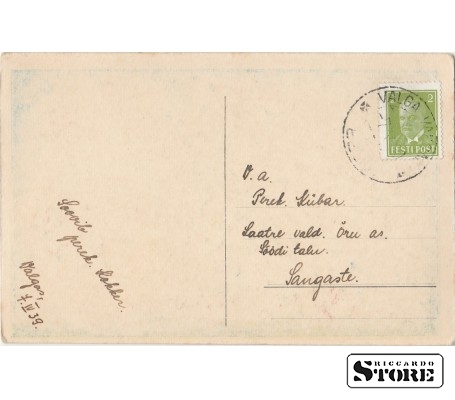 Soovib
perek. Lokker.
Valgas,
7. IV 39.
VALGA
2
EESTI POST
V. a.
Perek. Kübar.
Laatre vald. Õru as.
Söödi talu.
Sangaste.
RICCARDO
STORE